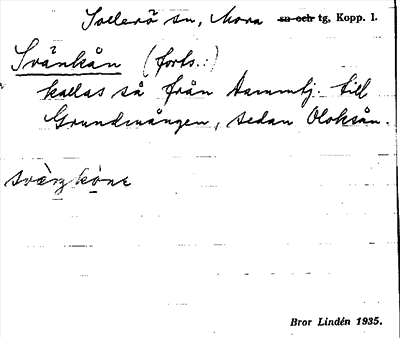 Sollerö sn, Mora sn och tg, Kopp. l.
Svänkån (forts.:)
kallas så från Dammtj. till
Grundmången, sedan Oloksån.
Bror Lindén 1935.